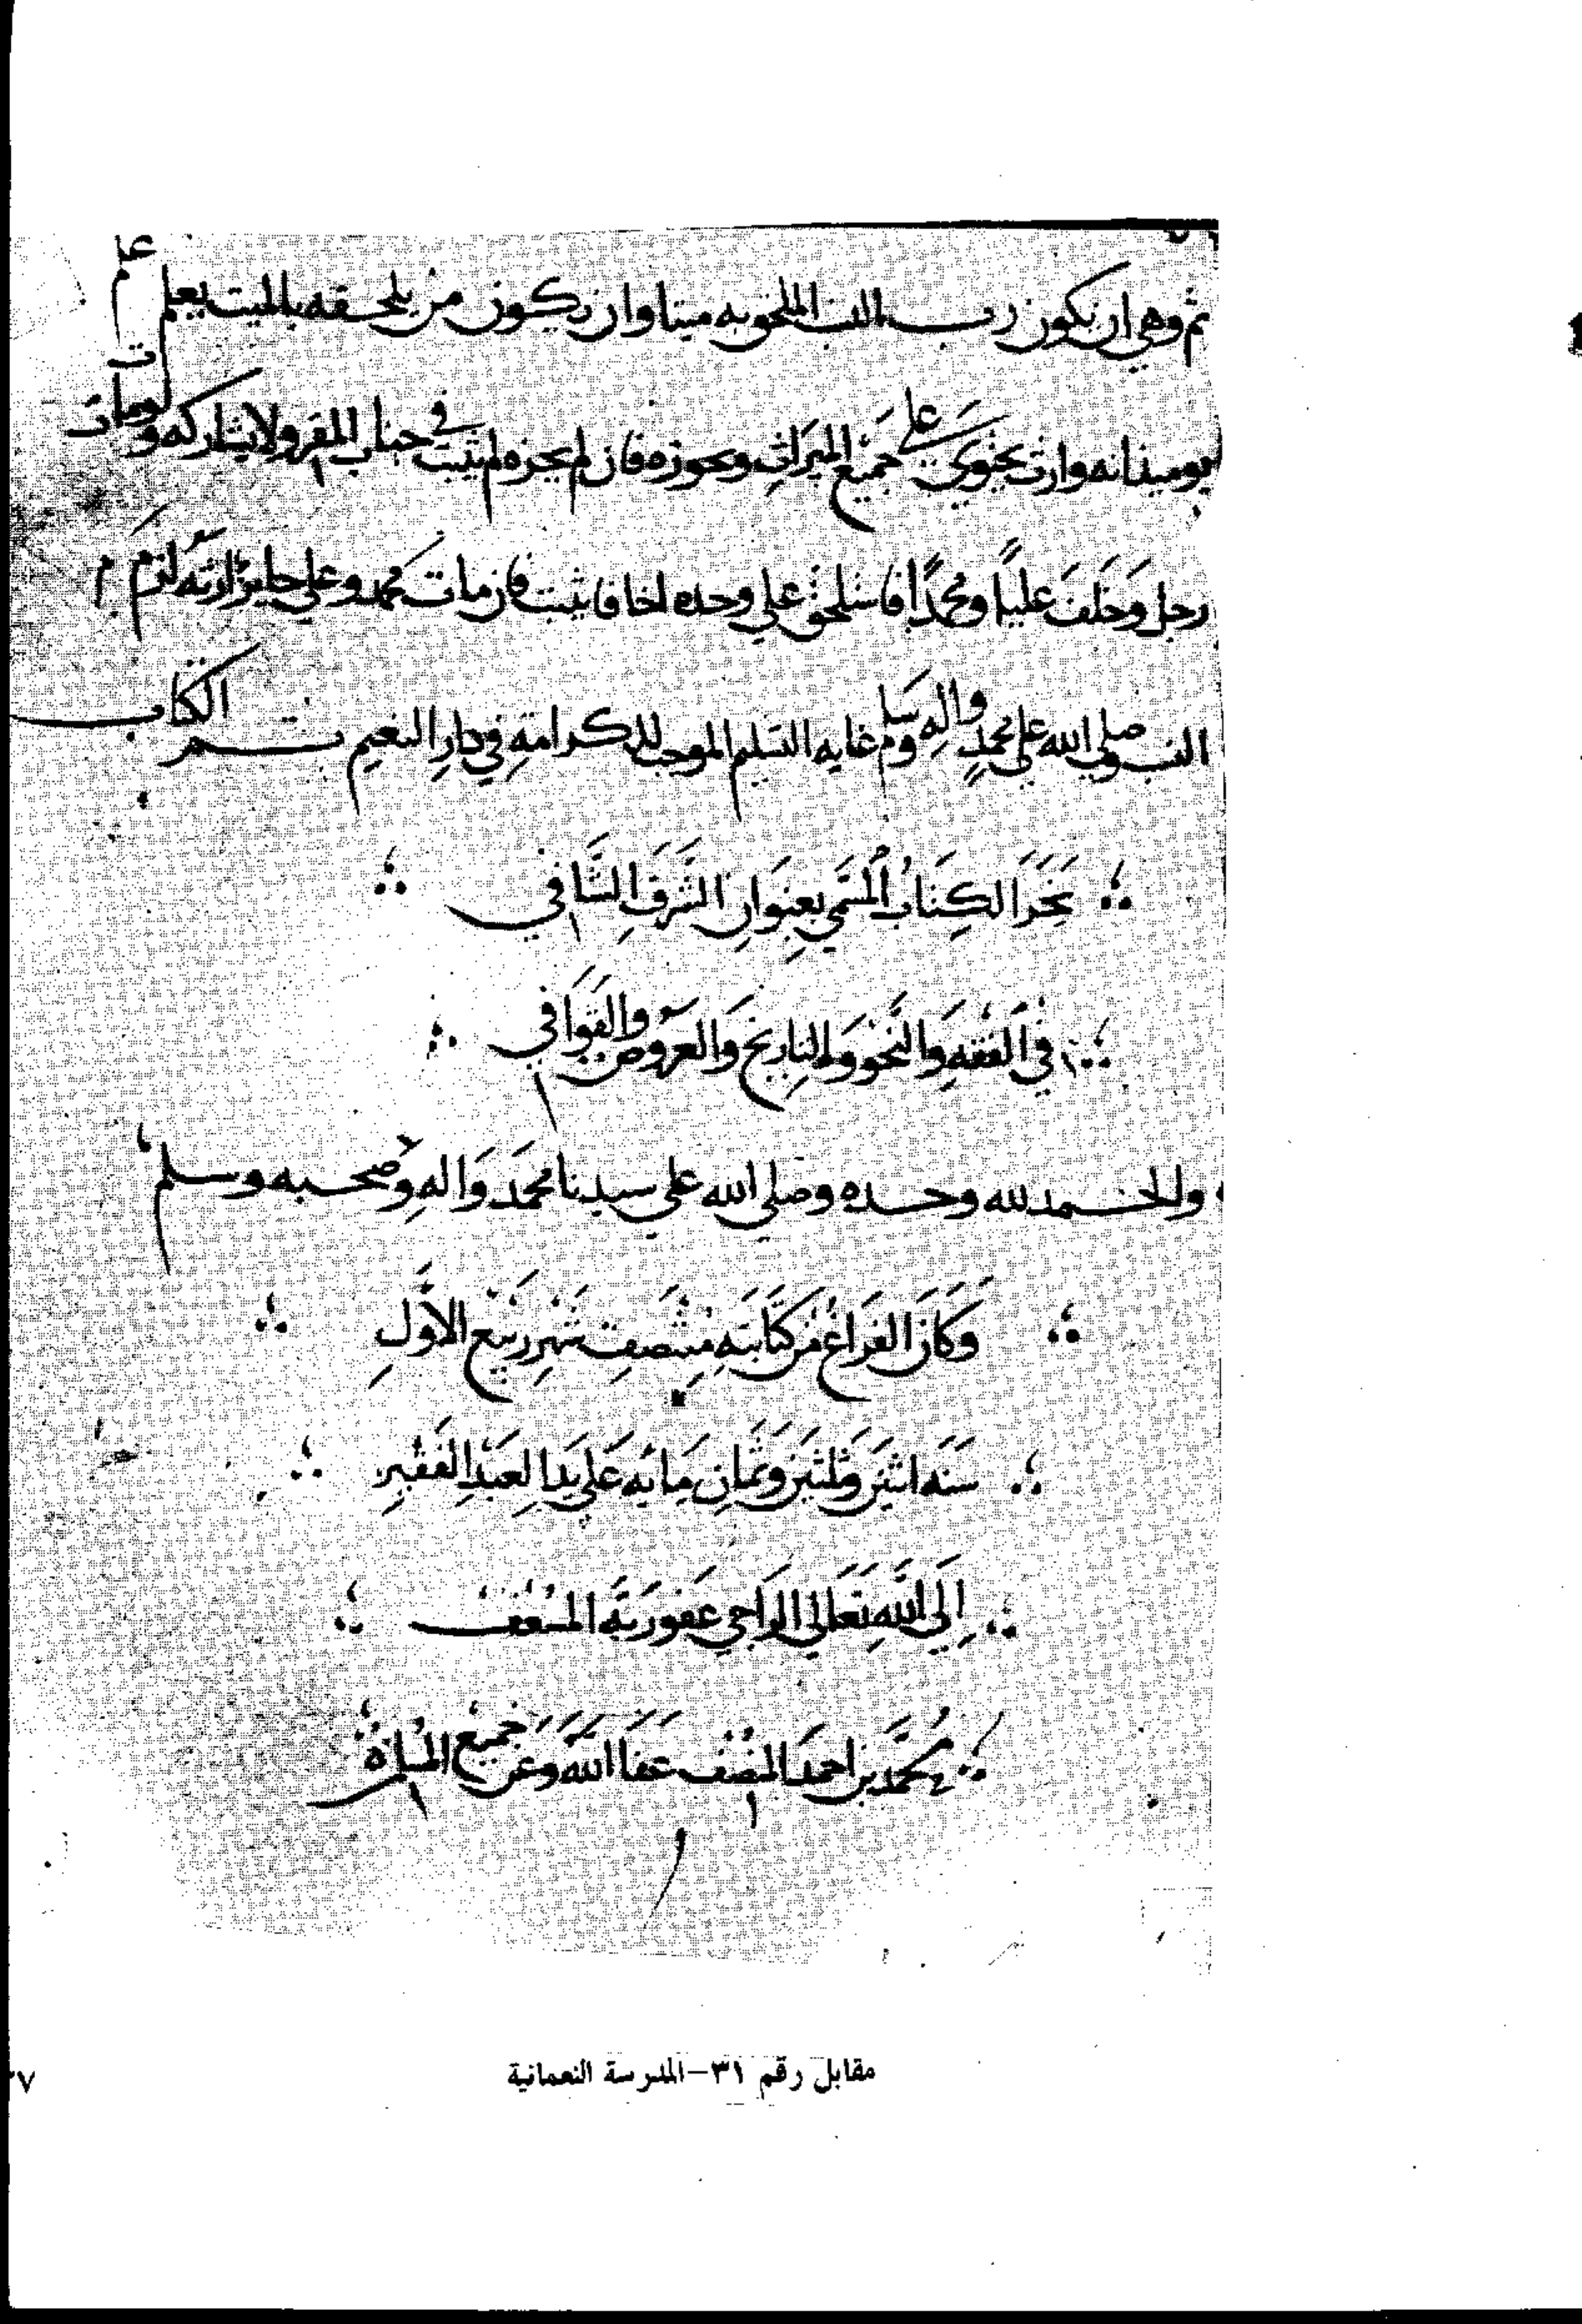 ثم وهي ان يكون رب النسب الملحق به ميتا وان يكون من يلحقه بالميت يعلم علم
يوميذ انه وارث يحتوي على جميع الميراث ويحوزه فان لم يحزه لم يثبت في جناب المقر ولا يشاركه ولو مات
رجل وخلف عليًا ومحمدًا فاستلحق علي وحده اخا فا يثبت فان مات محمد وعلي حايز ارثه لزم
النسب وصلى الله على محمد واله وسلم غاية التسليم الموجب للكرامة في دار النعيم تم الكتاب
نَجَزَ الكِتَابُ المُسَمَّى بِعِنْوَانِ الشَّرَفِ الشَّافي
في الفِقْهِ وَالنَّحْوِ وَالتاريخ وَالعَرُوض والقَوَافي
والحمد لله وحده وصلي الله علي سيدنا محمد وَالهِ وصحبه وسلم
وَكَانَ الفَرَاغُ مِن كتَابَتِهِ مُنْتَصِف شَهْرِ رَبيع الأوَّلِ
سَنَه اثنَين وثلثين وثمَانِ مِايَه عَلى يَدِ العَبْدِ الفَقِيرِ
إلَى اللَّهِ تَعَالي الراجي عَفْوَ رَبّه المسْعف
مُحَمَّد بن احمَد المنصف عَفَا اللَّه وعَن جميع المسلمين
مقابل رقم ٣١-المدرسة النعمانية
٧